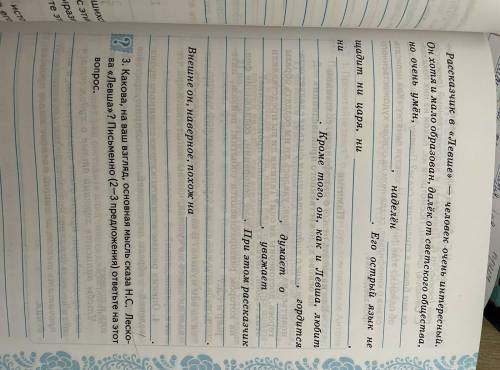 Рассказчик в «Левше» — человек очень интересный.
Он хотя и мало образован, далёк от светского общества,
но очень умён,
, наделён
. Его острый язык не
щадит ни царя, ни
ни .
. Кроме того, он, как и Левша, любит
, гордится
, думает о
, уважает
. При этом рассказчик
.
Внешне он, наверное, похож на
.
? 3. Какова, на ваш взгляд, основная мысль сказа Н.С. Леско-
ва «Левша»? Письменно (2—3 предложения) ответьте на этот
вопрос.